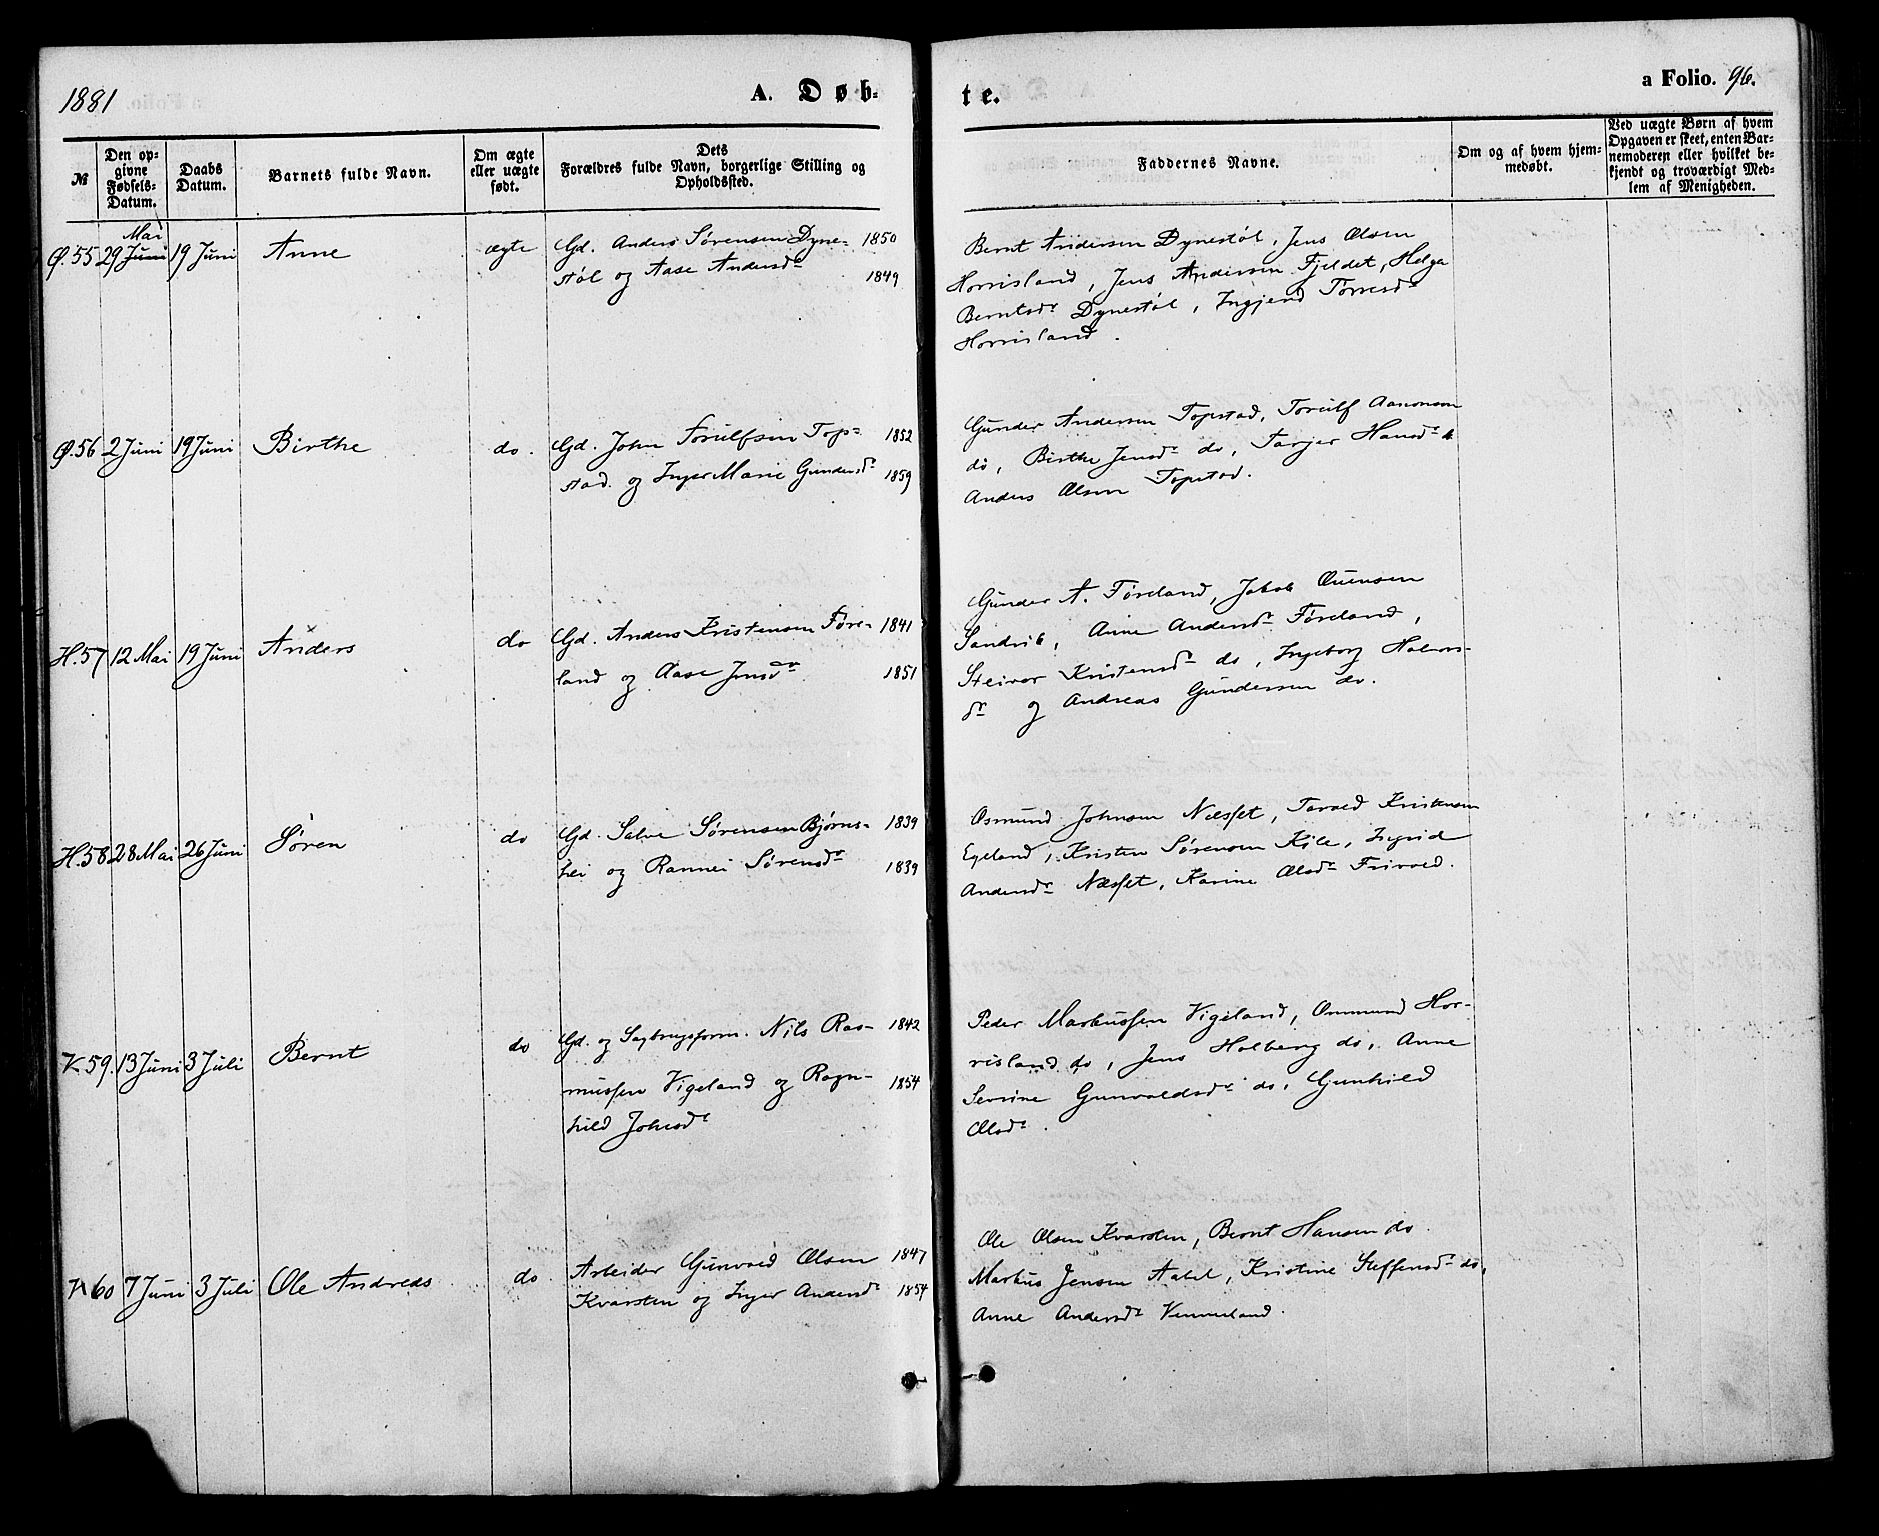 1881
A. Døb-
te.
a Folio. 96.
№
Den op-
givne
Fødsels-
Datum.
Daabs
Datum.
Barnets fulde Navn.
Om ægte
eller uægte
født.
Dets
Forældres fulde Navn, borgerlige Stilling og
Opholdssted.
Faddernes Navne.
Om og af hvem hjem-
medøbt.
Ved uægte Børn af hvem
Opgaven er skeet, enten Bar-
nemoderen eller hvilket be-
kjendt og troværdigt Med-
lem af Menigheden.
Mai
Ø.55 29 Juni 19 Juni Anne ægte Gd. Anders Sørensen Dyne- 1850
støl og Aase Andersdr 1849
Bernt Andersen Dynestøl, Jens Olsen
Horrisland, Jens Andersen Fjeldet, Helga
Berntsdr Dynestøl, Ingjerd Tørresdr
Horrisland.
Ø.56 2 Juni 19 Juni Birthe do. Gd. John Torulfsen Top- 1852
stad. og Inger Marie Gundersdr 1859
Gunder Andersen Topstad, Torulf Aanonsen
do, Birthe Jensdr do, Tarjer Hansdr
Anders Olsen Topstad.
H.57 12 Mai 19 Juni Anders do Gd. Anders Kristensen Føre- 1841
land og Aase Jensdr 1851
Gunder A. Føreland, Jakob
Sandvik, Anne Andersdr Føreland,
Steivor Kristensdr do, Ingeborg
dr og Andreas Gundersen do.
H.58 28 Mai 26 Juni Søren do Gd. Salve Sørensen Bjørns- 1839
hei og Rannei Sørensdr 1839
Osmund Johnsen Næsset, Tarald Kristensen
Egeland, Kristen Sørensen Kile, Ingrid
Andersdr Næsset, Karine Olsdr Frivold.
V 59. 13 Juni 3 Juli Bernt do Gd. og Sagbrugsform. Nils Ras- 1842
mussen Vigeland og Ragn- 1854
hild Johnsdr
Peder Markussen Vigeland, Ommund Hor-
risland do, Jens Holberg do, Anne
Sevrine Gunvaldsdr do, Gunhild
Olsdr.
V 60 7 Juni 3 Juli Ole Andreas do Arbeider Gunvald Olsen 1847
Kvarsten og Inger Andersdr 1854
Ole Olsen Kvarsten, Bernt Hansen do
Markus Jensen Aabel, Kristine Steffensdr do,
Anne Andersdr Vennesland.